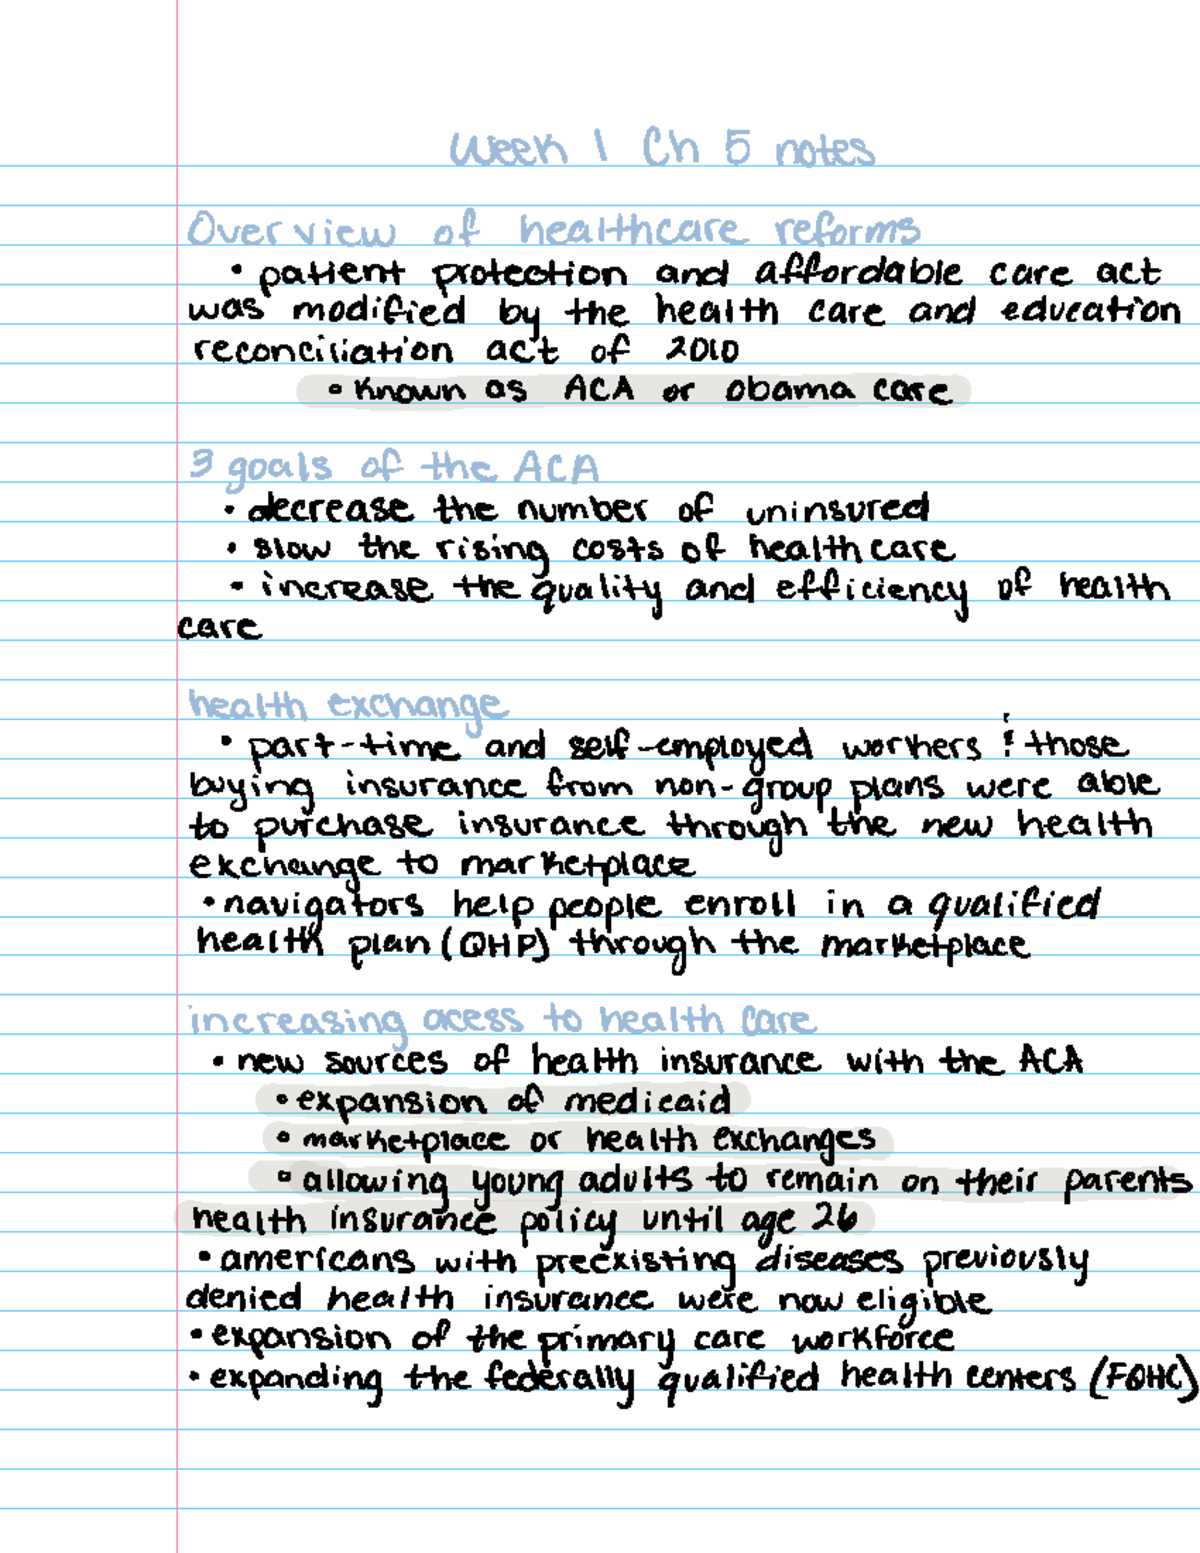 Week 1 Ch 5 notes
Overview of healthcare reforms
• patient protection and affordable care act
was modified by the health care and education
reconciliation act of 2010
• known as ACA or obama care
3 goals of the ACA
• decrease the number of uninsured
• slow the rising costs of healthcare
• increase the quality and efficiency of health
care
health exchange
• part-time and self-employed workers & those
buying insurance from non-group plans were able
to purchase insurance through the new health
exchange to marketplace
• navigators help people enroll in a qualified
health plan (QHP) through the marketplace
increasing acess to health care
• new sources of health insurance with the ACA
• expansion of medicaid
• marketplace or health exchanges
• allowing young adults to remain on their parents
health insurance policy until age 26
• americans with preexisting diseases previously
denied health insurance were now eligible
• expansion of the primary care workforce
• expanding the federally qualified health centers (FQHC)